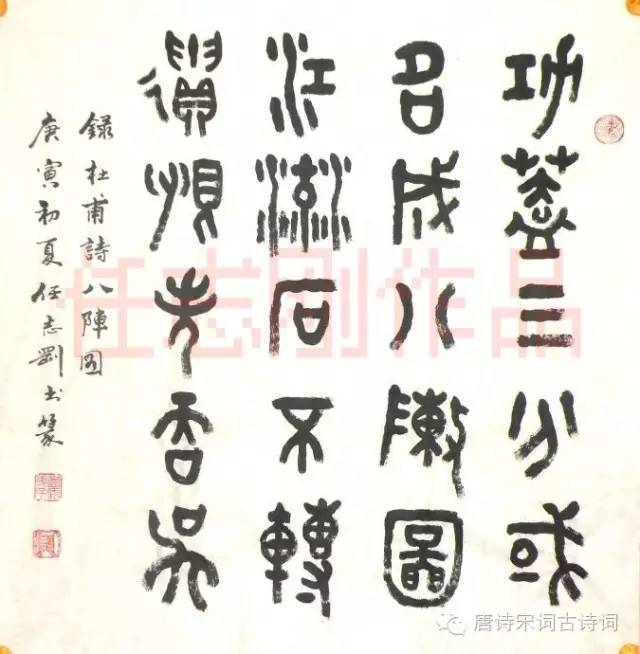 功蓋三分或
名成八敶圖
江流石不轉
遺恨失吞吳
錄杜甫詩八陣图
庚寅初夏任志剛书篆
任志刚作品
唐诗宋词古诗词